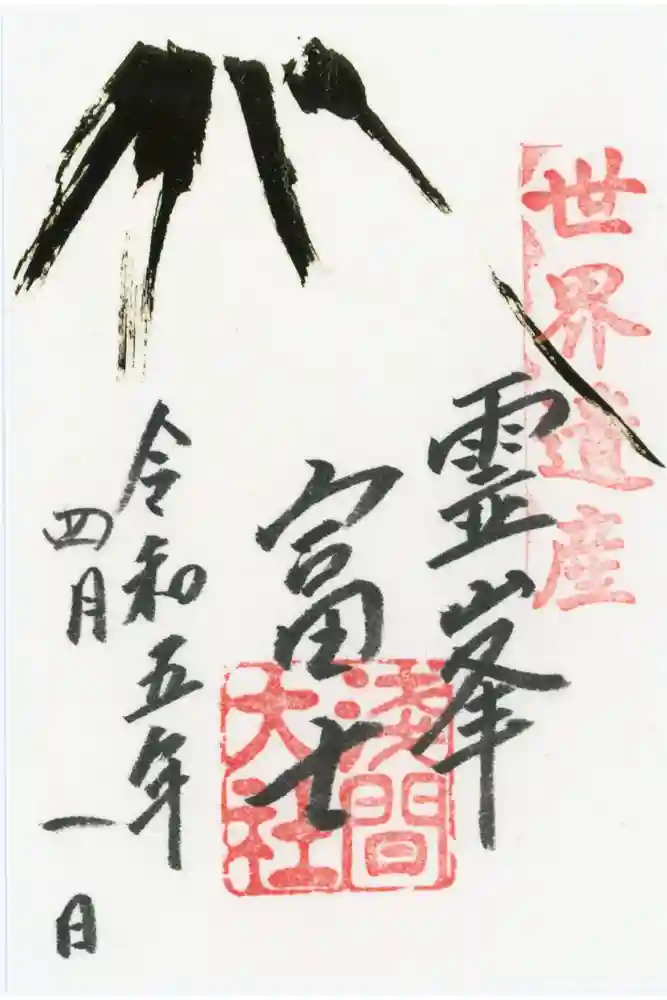 世界遺産
霊峯
富士
淺間
大社
令和五年
四月
一日